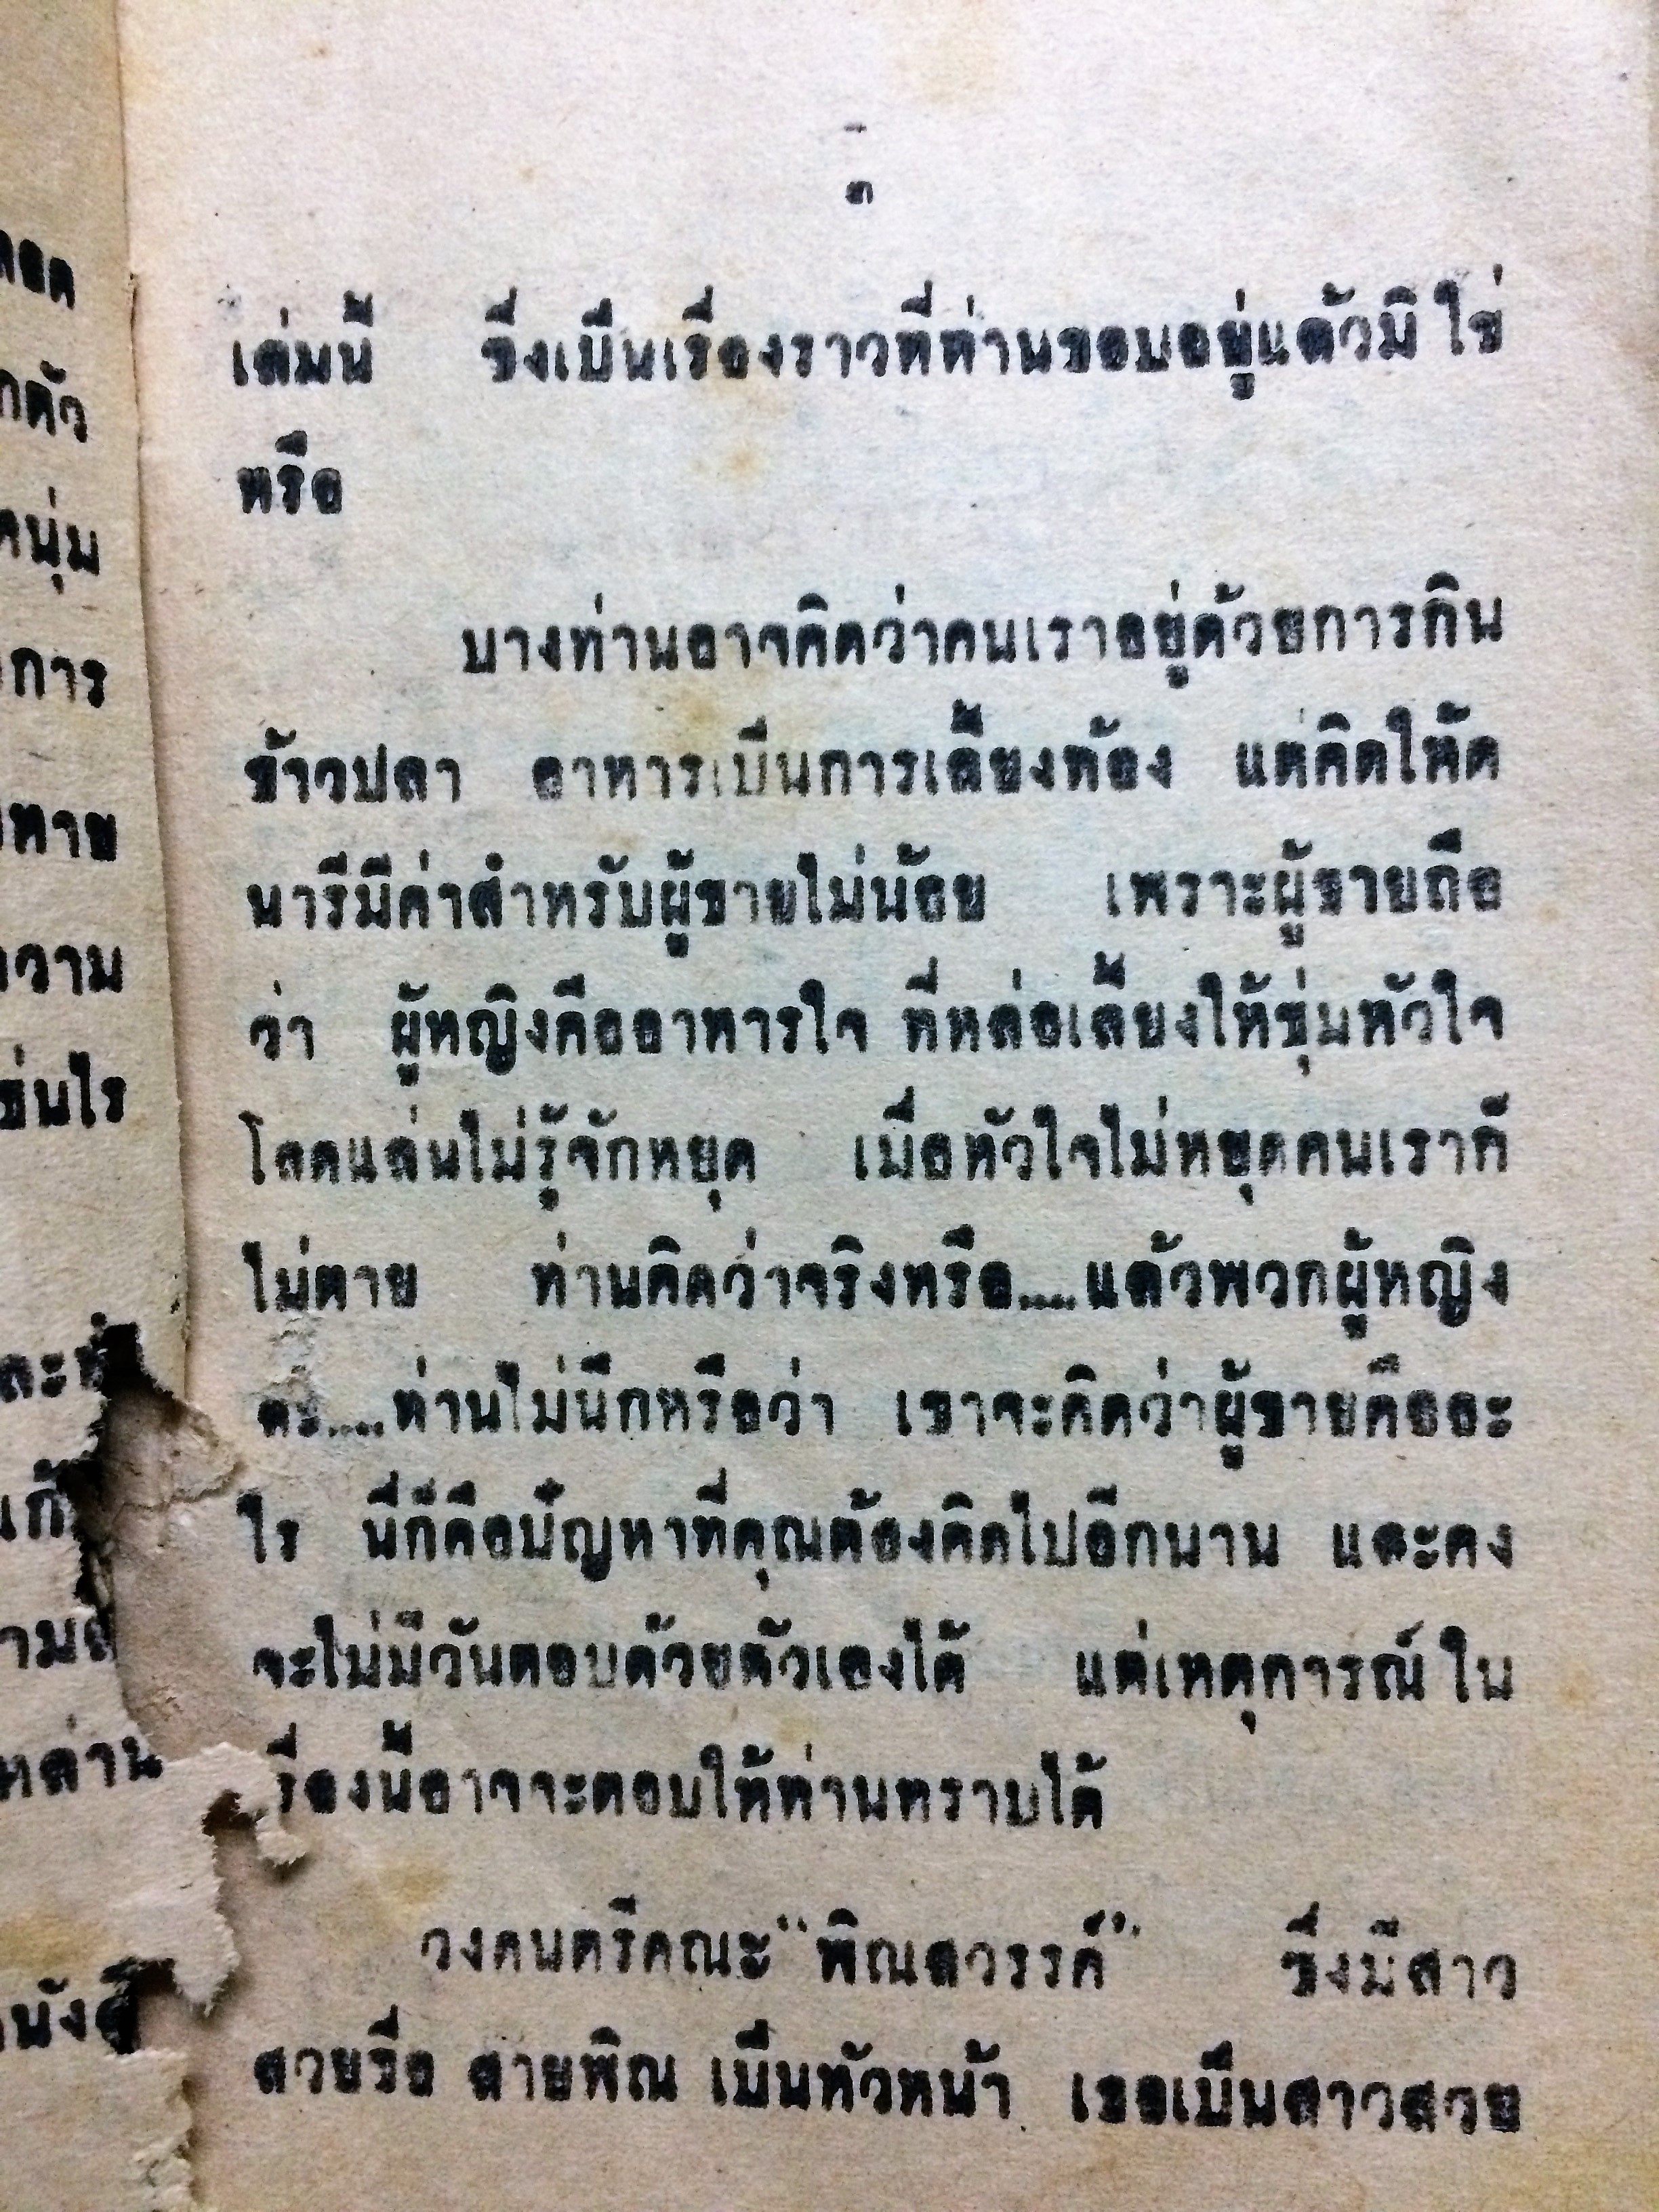 ๓
เล่มนี้ ซึ่งเป็นเรื่องราวที่ท่านชอบอยู่แล้วมิใช่
หรือ
บางท่านอาจคิดว่าคนเราอยู่ด้วยการกิน
ข้าวปลา อาหารเป็นการเลี้ยงท้อง แต่คิดให้ดี
นารีมีค่าสำหรับผู้ชายไม่น้อย เพราะผู้ชายถือ
ว่า ผู้หญิงคืออาหารใจ ที่หล่อเลี้ยงให้ชุ่มหัวใจ
โลดแล่นไม่รู้จักหยุด เมื่อหัวใจไม่หยุดคนเราก็
ไม่ตาย ท่านคิดว่าจริงหรือ....แล้วพวกผู้หญิง
ล่ะ....ท่านไม่นึกหรือว่า เขาจะคิดว่าผู้ชายคืออะ
ไร นี่ก็คือปัญหาที่คุณต้องคิดไปอีกนาน และคง
จะไม่มีวันตอบด้วยตัวเองได้ แต่เหตุการณ์ใน
รื่องนี้อาจจะตอบให้ท่านทราบได้
วงดนตรีคณะ"พิณสวรรค์" ซึ่งมีสาว
สวยชื่อ สายพิณ เป็นหัวหน้า เธอเป็นสาวสวย